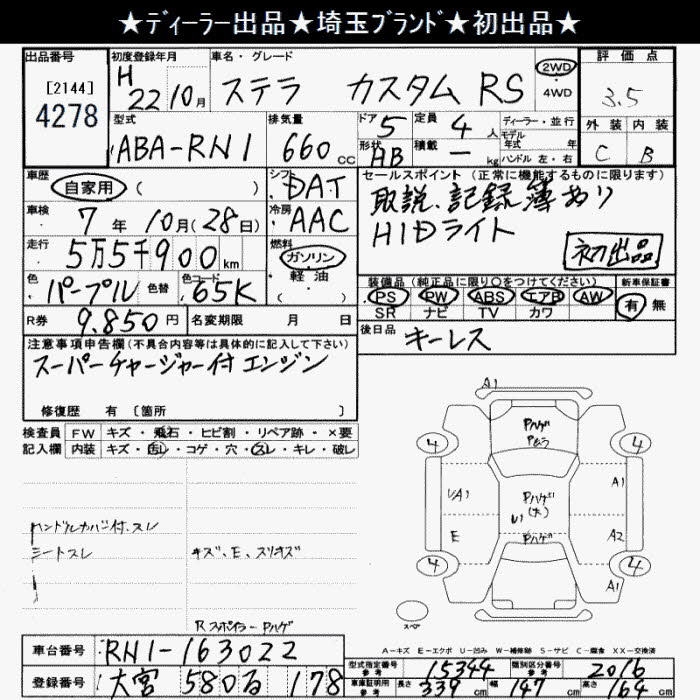 ★ディーラー出品★埼玉ブランド★初出品★
出品番号 初度登録年月 車名・グレード 評価点
[2144] H 2WD
4278 22 10月 ステラ カスタム RS 4WD 3.5
型式 排気量 ドア 定員 ディーラー・並行 外装 内装
モデル
ABA-RN1 660cc 5 4人 年式 年 C B
形状 積載
HB ー kg ハンドル 左・右
車歴 自家用 ( ) シフト DAT セールスポイント(正常に機能するものに限ります)
取説、記録簿あり
車検 7年 10月(28日) 冷房 AAC HIDライト
走行 5万5千900km 燃料 ガソリン 初出品
軽油
( )
色 パープル 色替 色コード 65K 装備品(純正品に限り○をつけてください) 新車保証書
PS PW ABS エアB AW 有 無
SR ナビ TV カワ
R券 9,850円 名変期限 月 日 後日品 キーレス
注意事項申告欄(不具合内容等は具体的に記入して下さい)
スーパーチャージャー付エンジン
修復歴 有 〔箇所 〕
検査員 FW キズ・飛石・ヒビ割・リペア跡・×要
記入欄 内装 キズ・汚レ・コゲ・穴・スレ・キレ・破レ
A1
Pハゲ
4 4
A1
Pハゲ
(大)
E A2
Pハゲ
4 4
A1
ハンドルカバー付、スレ
シートスレ キズ、E、スリキズ
Rスポイラー Pハゲ
スペア
A-キズ E-エクボ U-凹み W-補修跡 S-サビ C-腐食 XX-交換済
車台番号 RN1-163022
型式指定番号 参考 15344 類別区分番号 参考 2016
登録番号 大宮 580る 178
車庫証明用 参考 長さ 339cm 幅 147cm 高さ 164cm